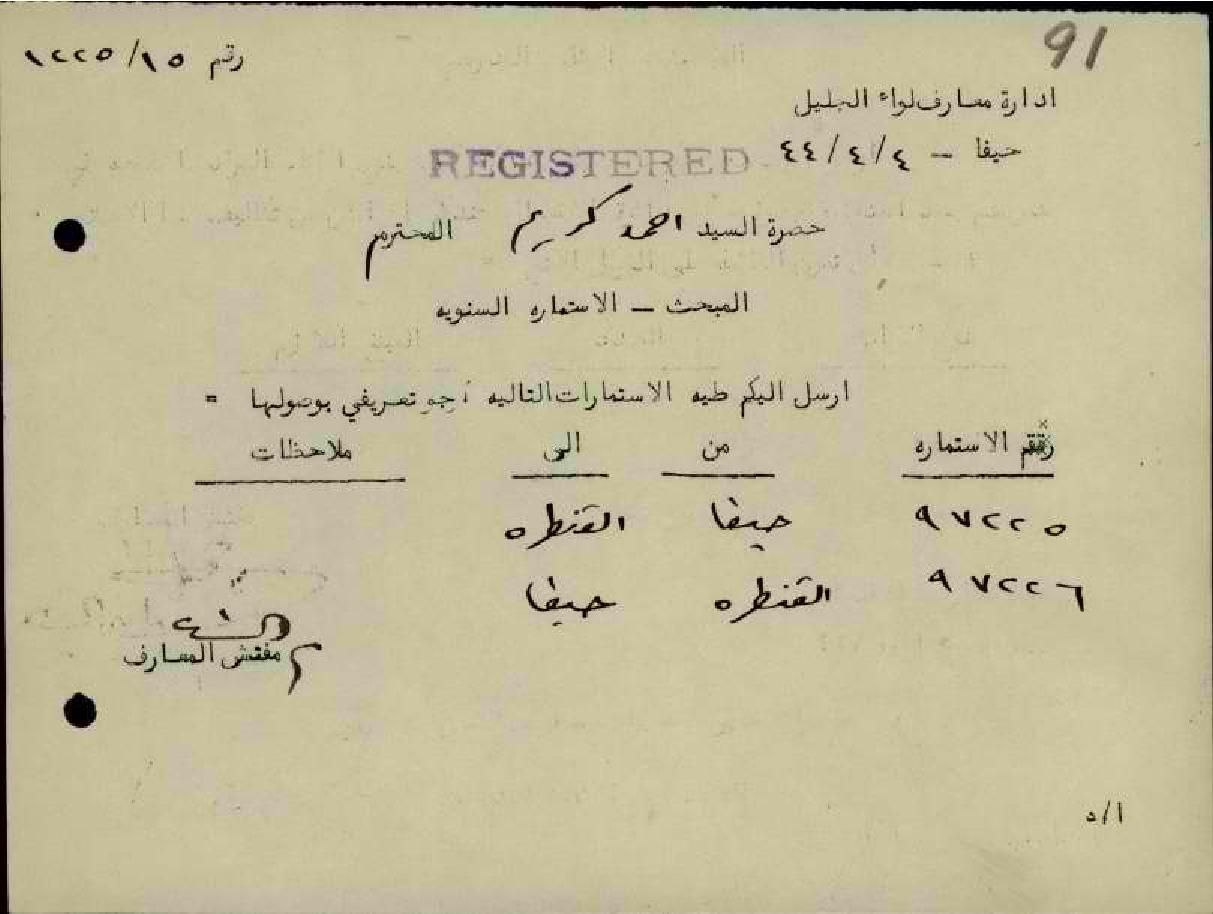 91
رقم ١٢٢٥/١٥
ادارة معارف لواء الجليل
حيفا - ٤٤/٤/٤
REGISTERED
حضرة السيد احمد كريم المحترم
المبحث - الاستماره السنويه
ارسل اليكم طيه الاستمارات التاليه ارجو تعريفي بوصولها =
رقم الاستماره من الى ملاحظات
٩٧٢٢٥ حيفا القنطره
٩٧٢٢٦ القنطره حيفا
مفتش المعارف
ا/د